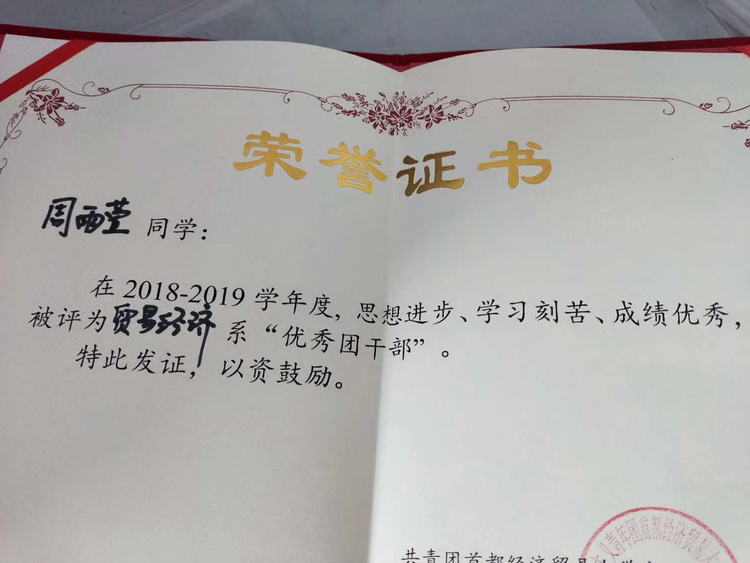 荣誉证书
周雨萱 同学：
在2018-2019学年度，思想进步、学习刻苦、成绩优秀，
被评为贸易经济系“优秀团干部”。
特此发证，以资鼓励。
青年团首都经济贸易大
共青团首都经济贸易大学